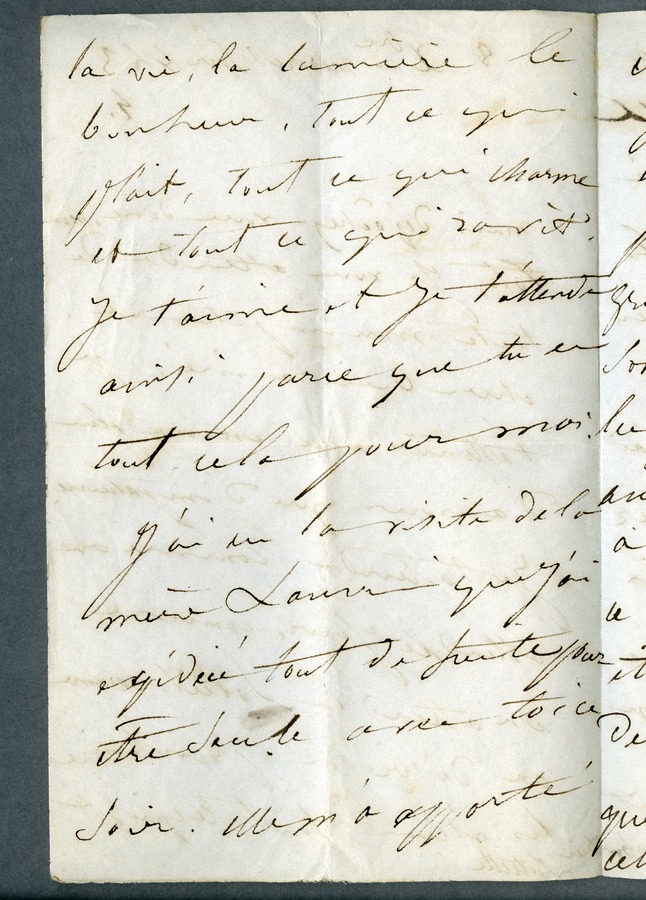 la vie, la lumière le
bonheur, tout ce qui
plait, tout ce qui charme
et tout ce qui ravit.
Je t'aime et je t'attends
ainsi parce que tu es
tout cela pour moi.
J'ai eu la visite de la
mère Lanvin que j'ai
expédiée tout de suite pour
être seule avec toi ce
soir. elle m'a apporté